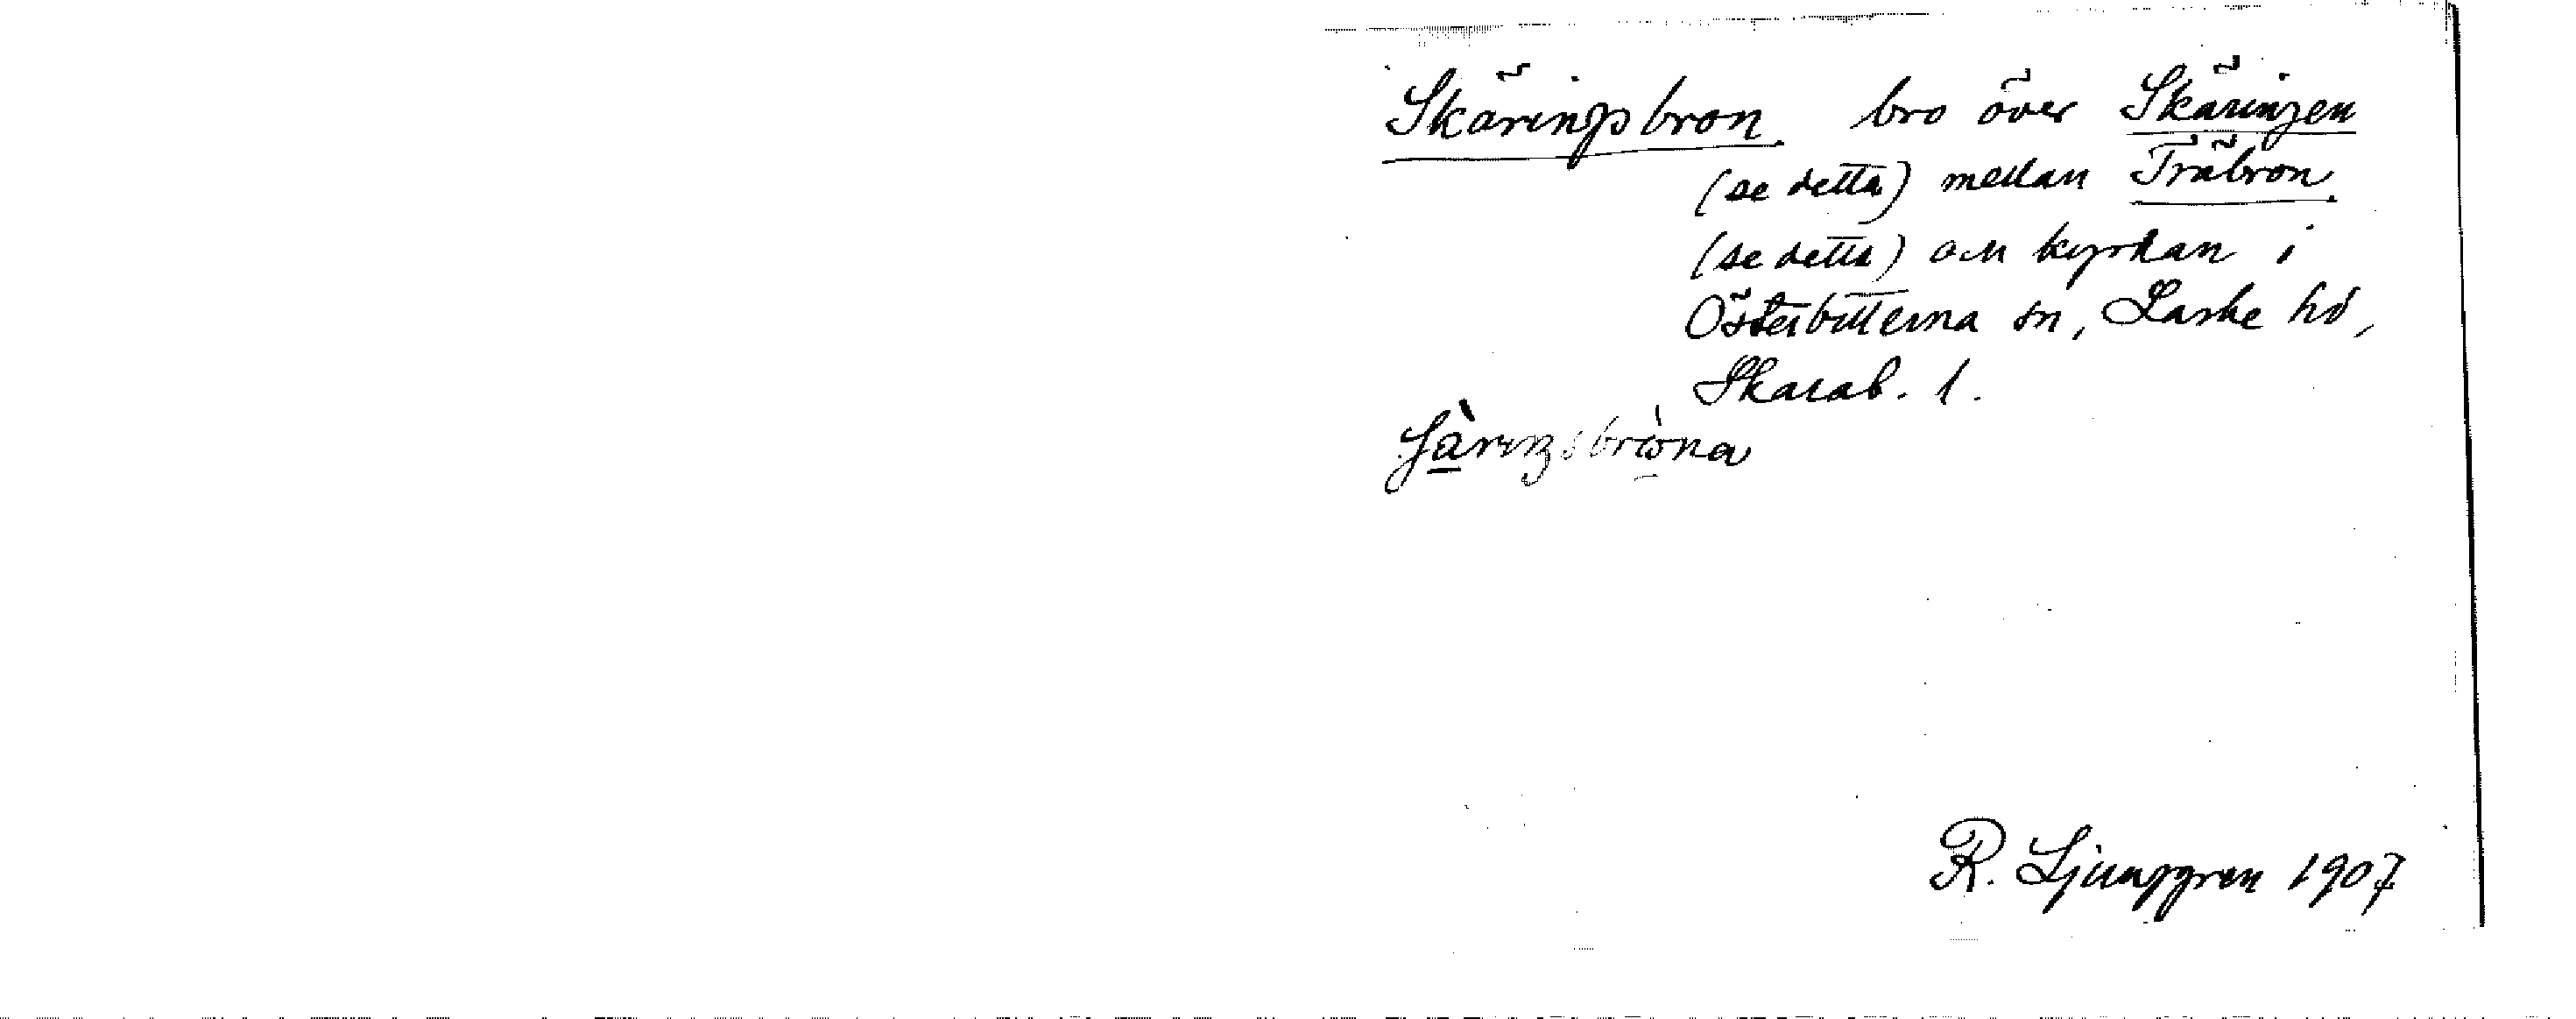 Skäringsbron. bro över Skäringen
(se detta) mellan Träbron.
(se detta) och kyrkan i
Österbitterna sn, Laske hd,
Skarab. l.
R. Ljunggren 1907